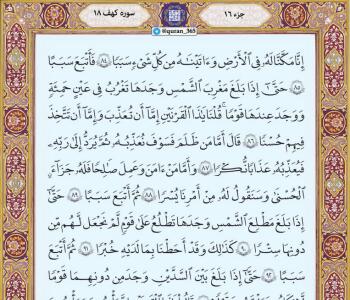 جزء ۱۶
@quran_365
سوره کهف ۱۸
إِنَّا مَكَّنَّا لَهُۥ فِي ٱلْأَرْضِ وَءَاتَيْنَٰهُ مِن كُلِّ شَىْءٍ سَبَبًا ۝٨٤ فَأَتْبَعَ سَبَبًا
۝٨٥ حَتَّىٰٓ إِذَا بَلَغَ مَغْرِبَ ٱلشَّمْسِ وَجَدَهَا تَغْرُبُ فِي عَيْنٍ حَمِئَةٍ
وَوَجَدَ عِندَهَا قَوْمًا ۗ قُلْنَا يَٰذَا ٱلْقَرْنَيْنِ إِمَّآ أَن تُعَذِّبَ وَإِمَّآ أَن تَتَّخِذَ
فِيهِمْ حُسْنًا ۝٨٦ قَالَ أَمَّا مَن ظَلَمَ فَسَوْفَ نُعَذِّبُهُۥ ثُمَّ يُرَدُّ إِلَىٰ رَبِّهِۦ
فَيُعَذِّبُهُۥ عَذَابًا نُّكْرًا ۝٨٧ وَأَمَّا مَنْ ءَامَنَ وَعَمِلَ صَٰلِحًا فَلَهُۥ جَزَآءً
ٱلْحُسْنَىٰ ۖ وَسَنَقُولُ لَهُۥ مِنْ أَمْرِنَا يُسْرًا ۝٨٨ ثُمَّ أَتْبَعَ سَبَبًا ۝٨٩ حَتَّىٰٓ
إِذَا بَلَغَ مَطْلِعَ ٱلشَّمْسِ وَجَدَهَا تَطْلُعُ عَلَىٰ قَوْمٍ لَّمْ نَجْعَل لَّهُم مِّن
دُونِهَا سِتْرًا ۝٩٠ كَذَٰلِكَ وَقَدْ أَحَطْنَا بِمَا لَدَيْهِ خُبْرًا ۝٩١ ثُمَّ أَتْبَعَ
سَبَبًا ۝٩٢ حَتَّىٰٓ إِذَا بَلَغَ بَيْنَ ٱلسَّدَّيْنِ وَجَدَ مِن دُونِهِمَا قَوْمًا